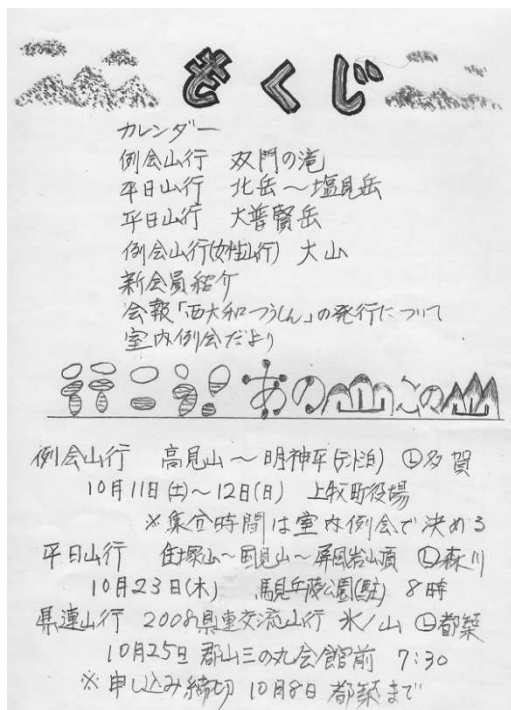 もくじ
カレンダー
例会山行 双門の滝
平日山行 北岳～塩見岳
平日山行 大普賢岳
例会山行(女性山行) 大山
新会員紹介
会報「西大和つうしん」の発行について
室内例会だより
行こう! あの山この山
例会山行 高見山～明神平(テント泊) Ⓛ多賀
10月11日(土)～12日(日) 上牧町役場
※集合時間は室内例会で決める
平日山行 住塚山～国見山～屏風岩山頂 Ⓛ森川
10月23日(木) 馬見丘陵公園(駐) 8時
県連山行 2008県連交流山行 氷ノ山 Ⓛ都築
10月25日 郡山三の丸会館前 7:30
※申し込み締切 10月8日 都築まで